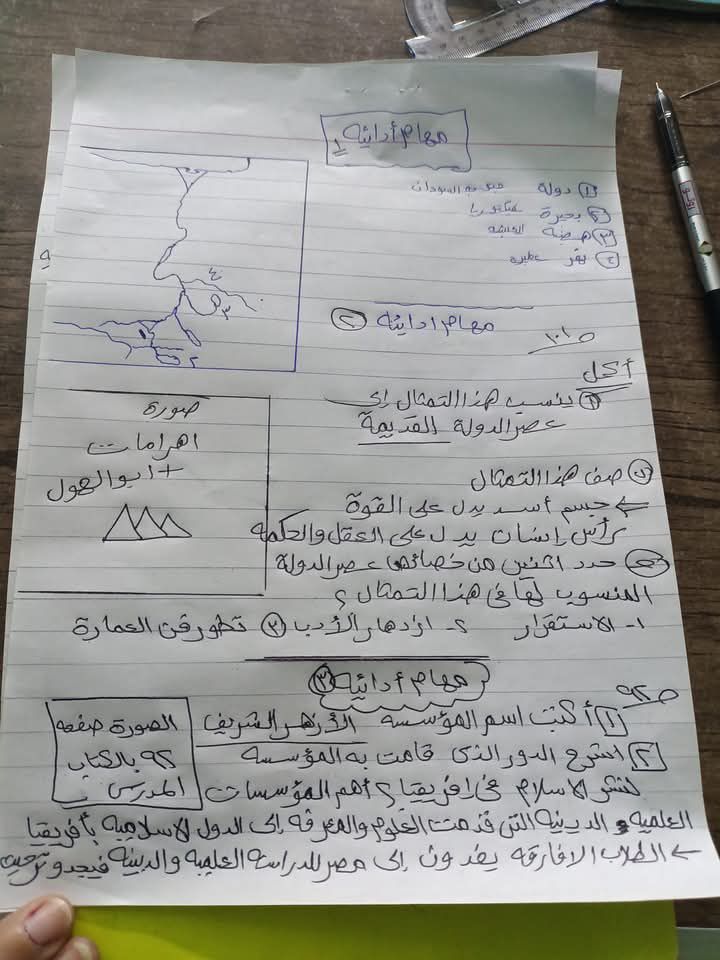 مهام أدائية
١
① دولة جنوب السودان
② بحيرة فيكتوريا
③ هضبة الحبشة
④ نهر عطبرة
٤
٣
٢
١
مهام أدائية ②
ص ١٠١
أكمل
① ينسب هذا التمثال إلى
عصر الدولة القديمة
صورة
اهرامات
+ ابو الهول
② صف هذا التمثال
← جسم أسد يدل على القوة
رأس إنسان يدل على العقل والحكمة
حدد اثنين من خصائص عصر الدولة
المنسوب لها في هذا التمثال ؟
١- الاستقرار ٢- ازدهار الأدب ③ تطور فن العمارة
مهام أدائية ③
ص ٩٢
الصورة صفحه
٩٢ بالكتاب
المدرسى
① أكتب اسم المؤسسه الأزهر الشريف
② اشرح الدور الذى قامت به المؤسسه
لنشر الاسلام فى إفريقيا ؟ أهم المؤسسات
العلميه و الدينيه التى قدمت العلوم والمعرفه إلى الدول الاسلاميه بأفريقيا
← الطلاب الافارقه يفدون إلى مصر للدراسه العلميه والدينيه فيجدو ترحيب